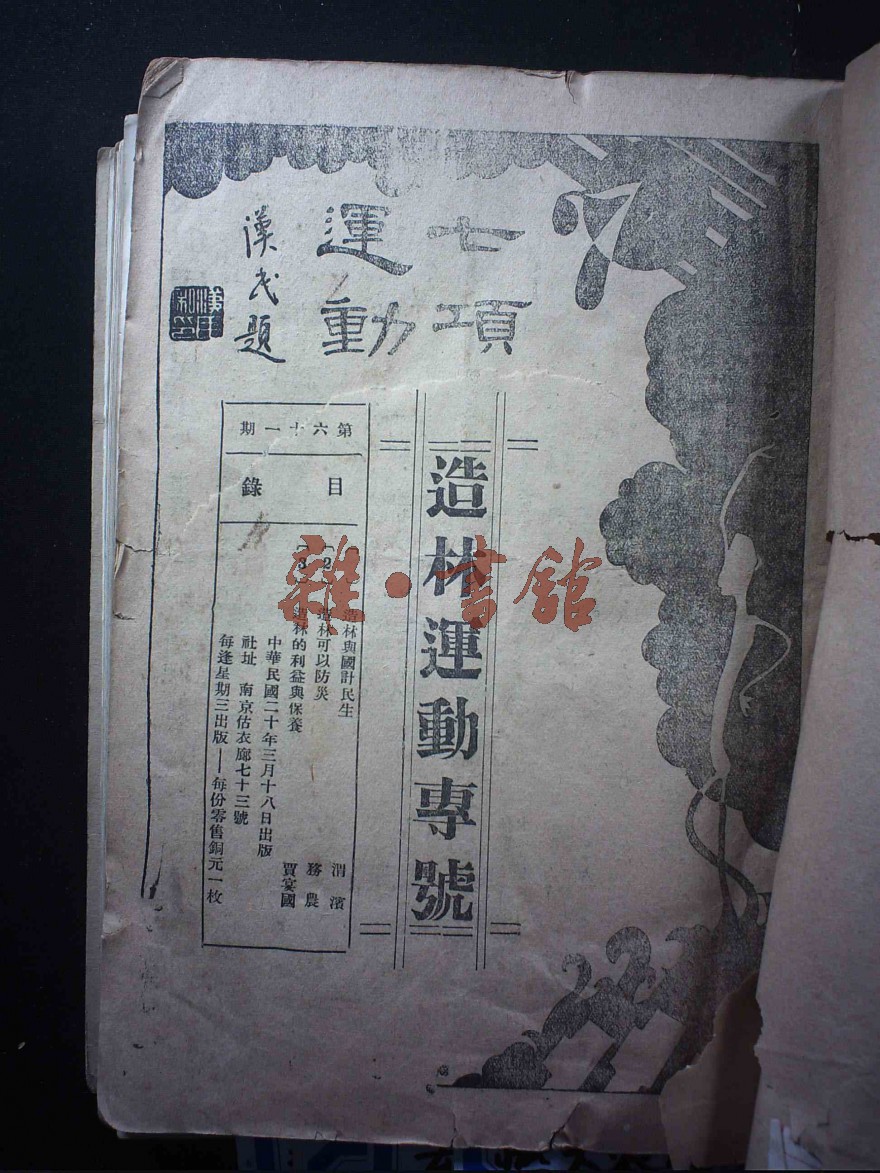 七項
運動
漢民題
造林運動專號
第六十一期
目錄
造林與國計民生 渭濱
2 造林可以防災 務農
3 造林的利益與保養 賈宴國
中華民國二十年三月十八日出版
社址 南京估衣廊七十三號
每逢星期三出版——每份零售銅元一枚
雜·書館